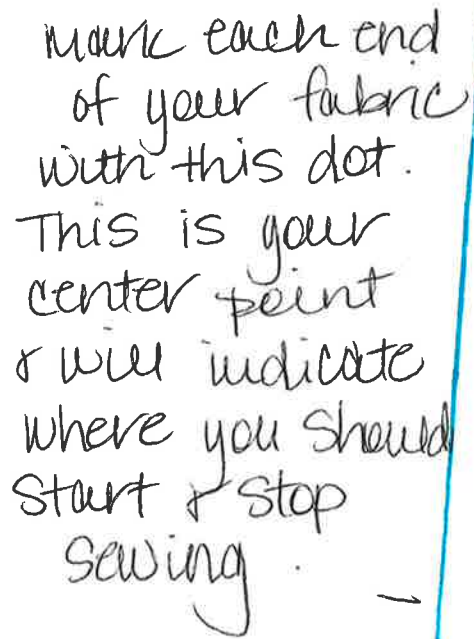 Mark each end
of your fabric
with this dot.
This is your
center point
& will indicate
where you should
start & stop
sewing.